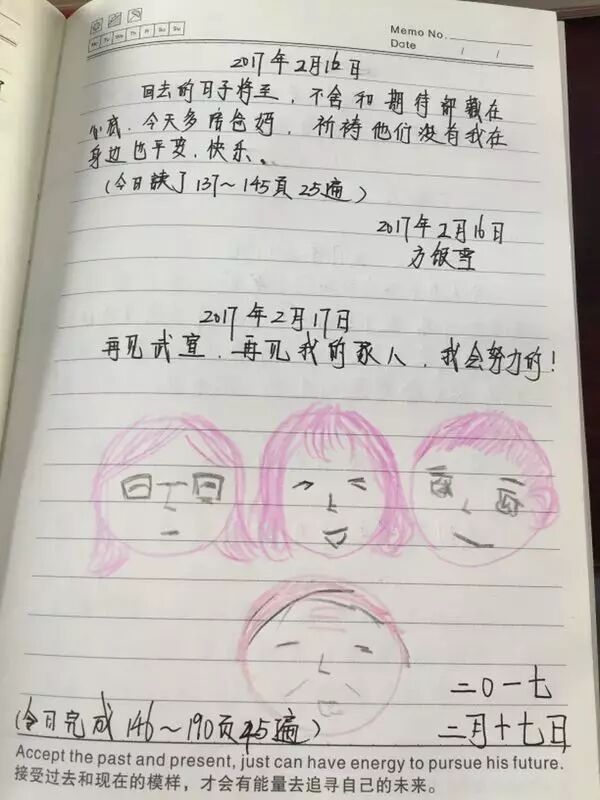 Mo Tu We Th Fr Sa Su
Memo No.
Date / /
2017年2月16日
回去的日子将至，不舍和期待都藏在
心底.今天多陪爸妈，祈祷他们没有我在
身边也平安.快乐、
(今日读了137~145页25遍)
2017年2月16日
方银雪
2017年2月17日
再见武宣，再见我的家人，我会努力的！
二〇一七
(今日完成146~190页45遍)
二月十七日
Accept the past and present, just can have energy to pursue his future.
接受过去和现在的模样，才会有能量去追寻自己的未来。